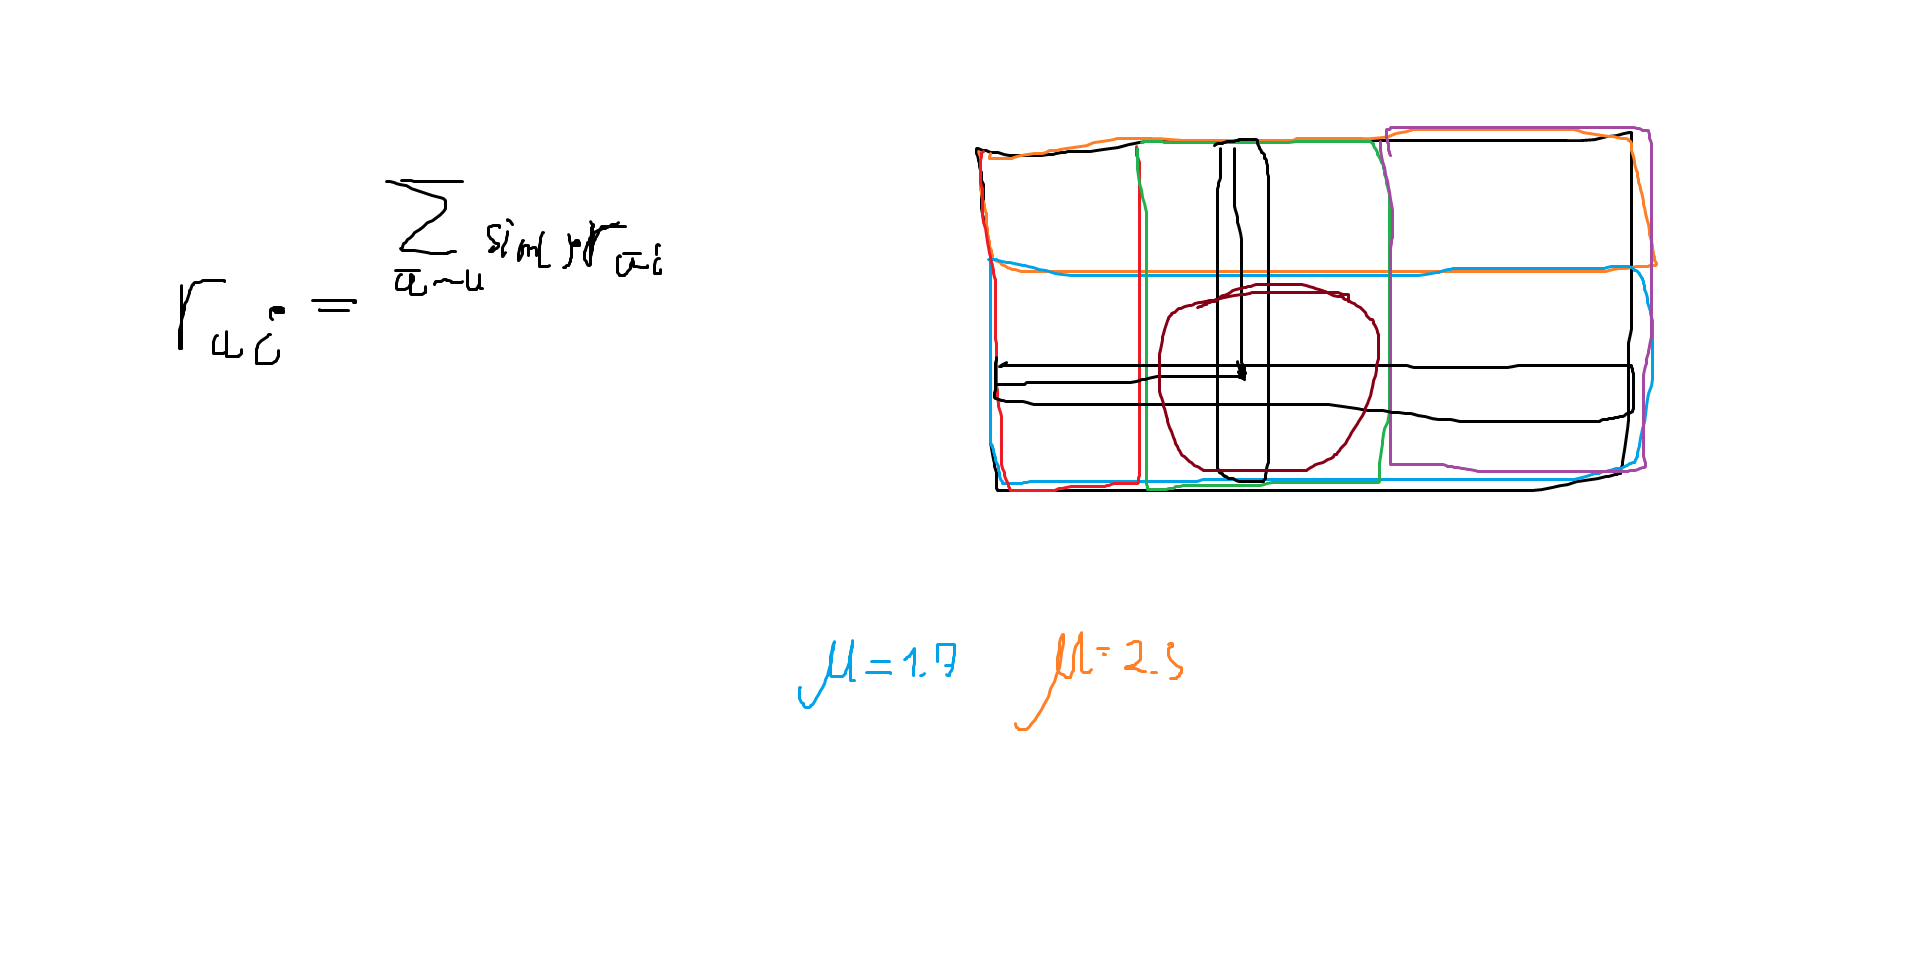 r_{ui} = \sum_{\bar{u} \sim u} sim( ) \cdot r_{\bar{u}i}
μ = 1.7 μ = 2.5